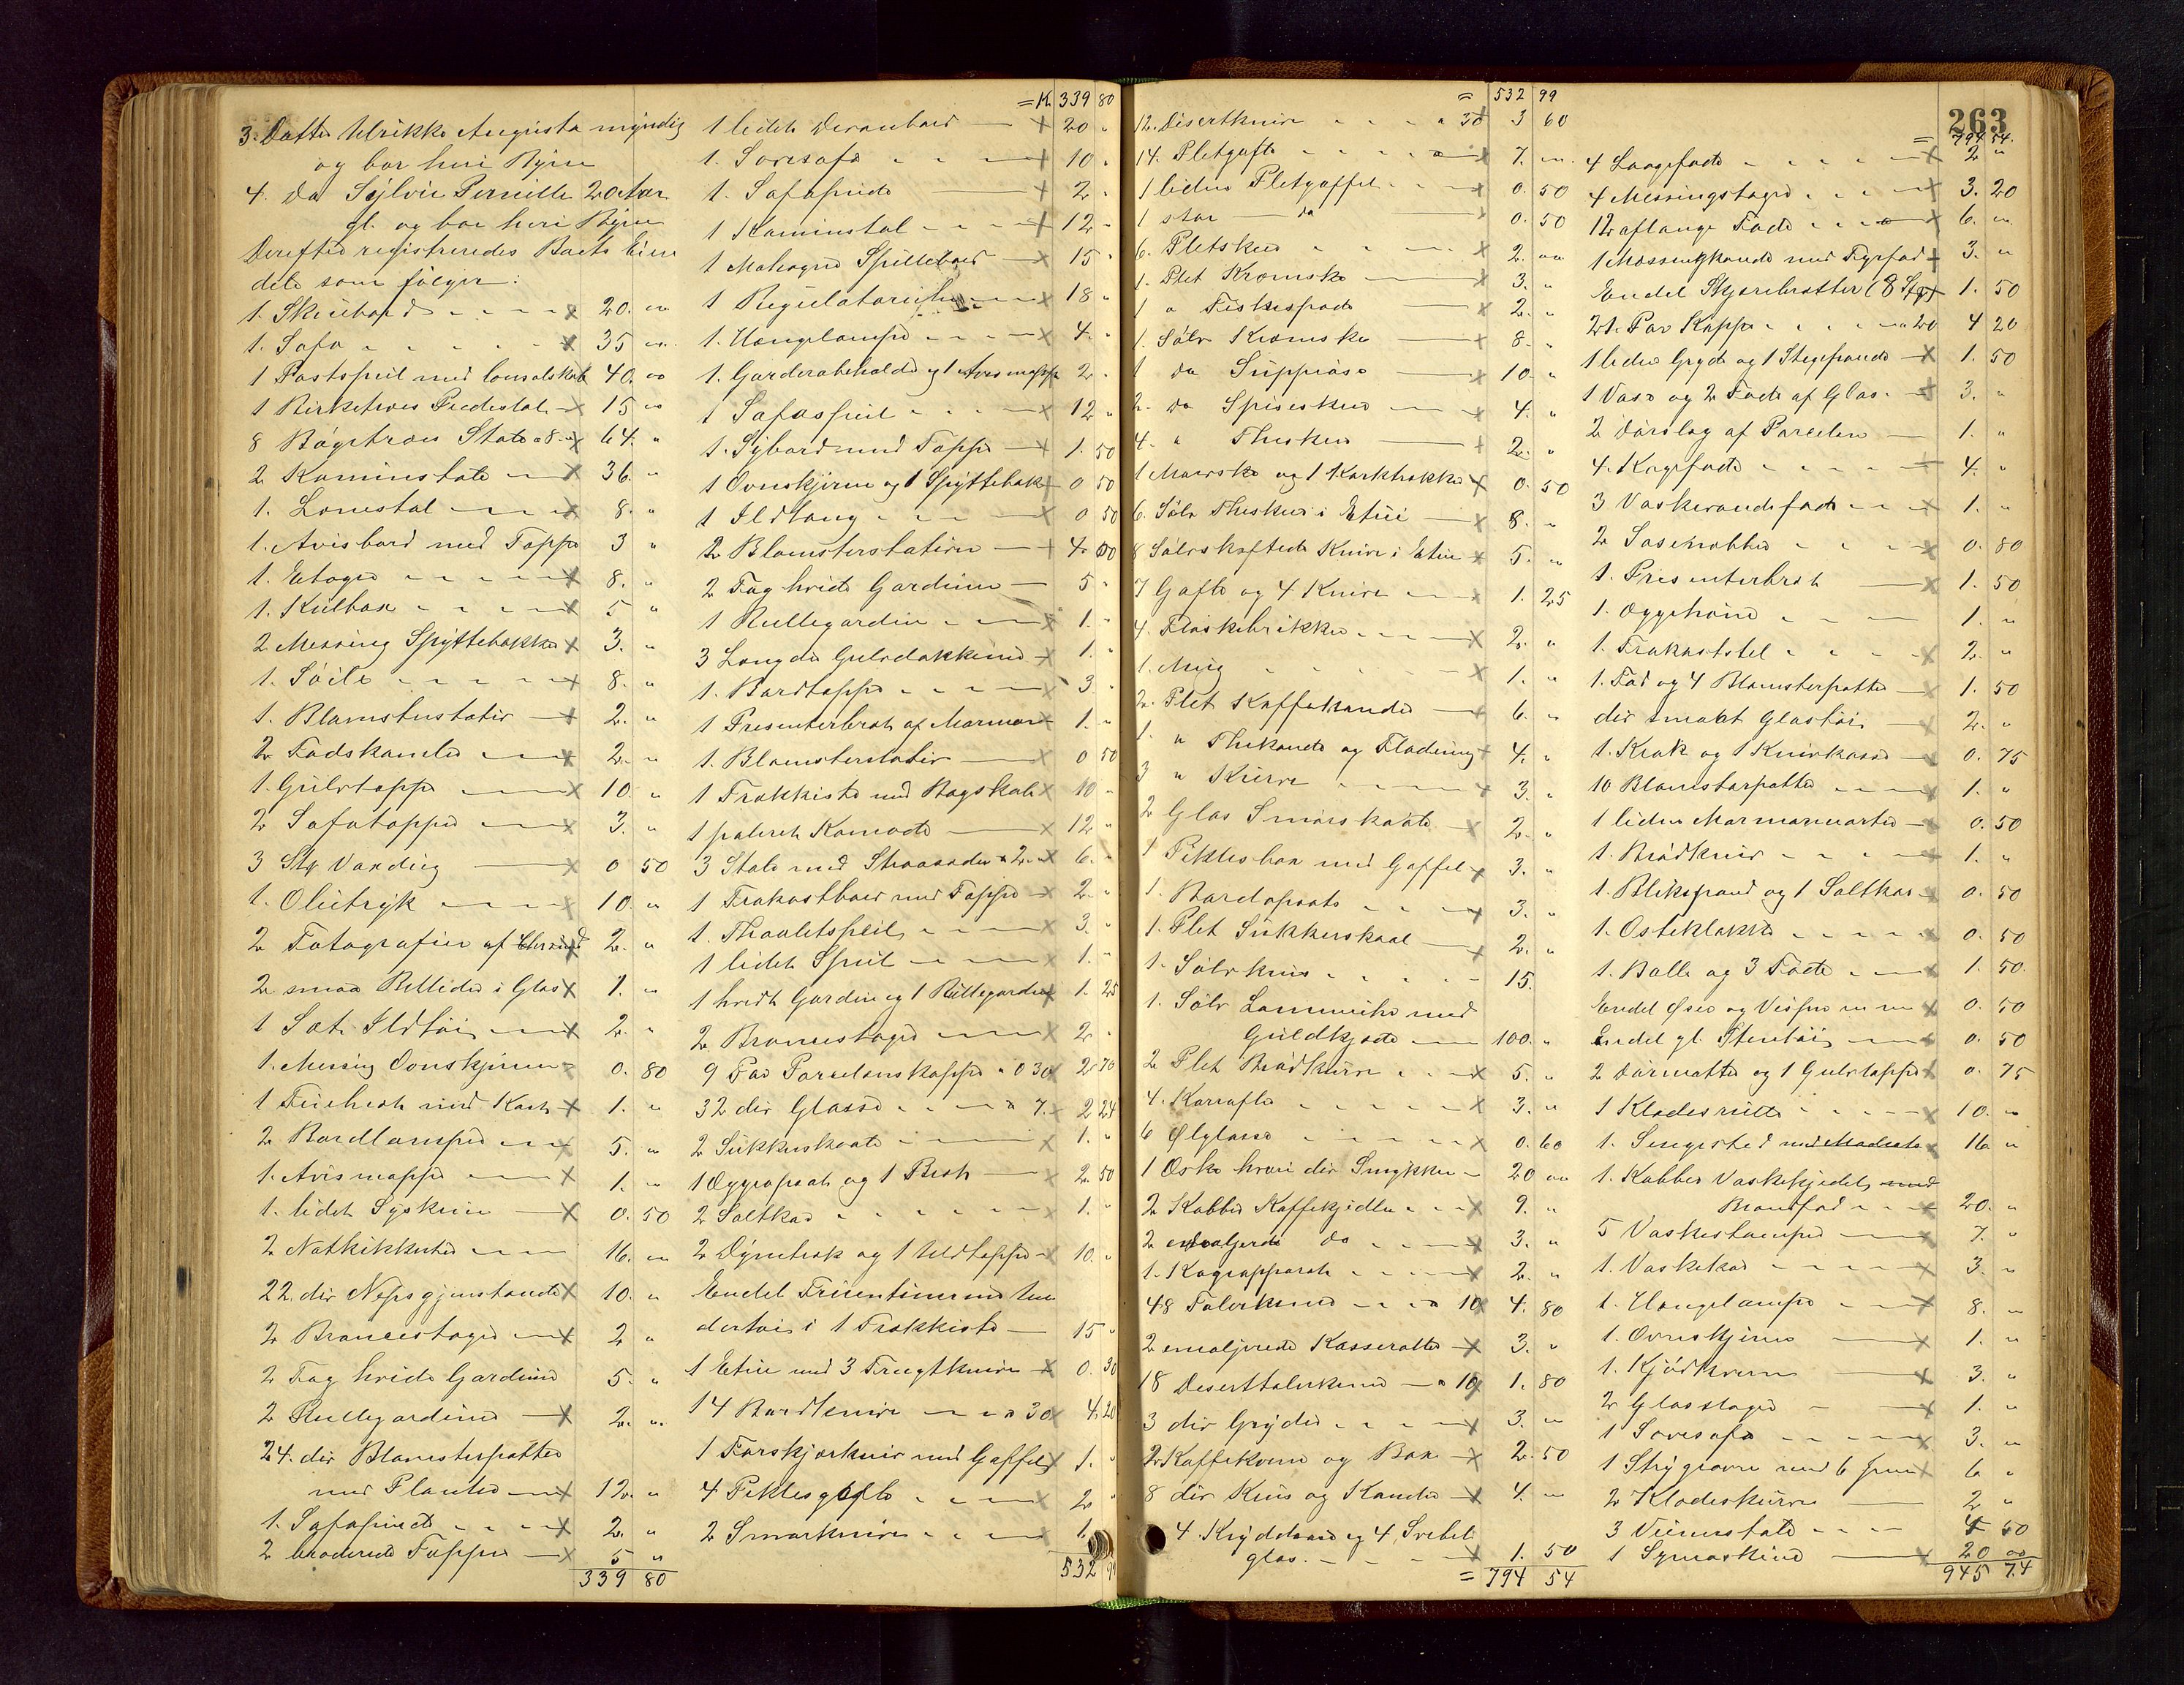 3. Datter Ulrikke Augusta myndig
og bor heri Byen
4. Do Sylvie Pernille 20 Aar
gl. og bor heri Byen
Derefter registreredes Boets Eien
dele som følger:
1. Skrivbord - - - - x 20. "
1. Sofa - - - - - x 35 "
1 Postspeil med Consolskab 40. "
1 Birketræs Piedestal - x 15 "
8 Bøgetræs Stole a 8. " x 64. "
2 Kaminstole - - x 36. "
1. Lænestol - - - x 8. "
1. Avisbord med Tæppe 3 "
1. Etagere - - - - x 8. "
1. Kulbox - - - - x 5 "
2 Messing Spyttebakker x 3. "
1. Søile - - - - - x 8. "
1. Blomsterstativ - x 2. "
2 Fodskamler - - x 2. "
1. Gulvtæppe - - x 10. "
2 Sofatæpper - - x 3. "
3 Stk Vanding - x 0 50
1. Olietryk - - - x 10. "
2 Fotografier af x 2. "
2 smaa Billeder i Glas x 1. "
1 Sæt Ildtøi - - - x 2. "
1. Messing Ovnskjerm - 0. 80
1 med x 1. "
2 Bordlamper - - x 5. "
1. Avismappe - - - x 1. "
1. lidet Syskrin - x 0. 50
2 Natkikkerter - - - 16. "
22 div Nipsgjenstande x 10. "
2 Broncestager - - x 2 "
2 Fag hvide Gardiner 5. "
2 Rullegardiner - x 2. "
24. div Blomsterpotter
med Planter - - x 12. "
1. Sofapude - - - - x 2. "
2 broderede Tæpper - x 5 "
339 80
= K 339 80
1 lidet Divanbord - x 20 "
1. Sovesofa - - - x 10. "
1. Sofapude - x 2 "
1 Kaminstol - - - - x 12 "
1 Mahogni Spillebord - x 15 "
1 Regulatoruhr - - - x 18 "
1. Hængelampe - - - x 4. "
1. Garderobeholder og 1 Avismappe 2 "
1 Sofaspeil - - - x 12 "
1. Sybord med Tæppe - x 1. 50
1 Ovnskjerm og 1 Spyttebak x 0 50
1 Ildtang - - - - x 0 50
2 Blomsterstativer - x 4. 00
2 Fag hvide Gardiner - 5 "
1 Rullegardin - - - x 1. "
3 Længder Gulvdækkener x 1. "
1. Bordtæppe - - - - x 3 "
1 Presenterbret af Marmor x 1. "
1. Blomsterstativ - x 0 50
1 Trækkiste med Bogskab x 10 "
1 poleret Komode - x 12 "
3 Stole med Straasæder a 2. " x 6. "
1 Frokostbord med Tæppe - x 2. "
1. Thoaletspeil - - - x 3. "
1 lidet Speil - - - - x 1. "
1 hvidt Gardin og 1 Rullegardin x 1. 25
2 Broncestager - - - x 2 "
9 Par Porcelænskopper a 0 30 x 2 70
32 div Glasse - - - a 7. x 2 24
2 Sukkerskaale - - - x 1. "
1 Æggeapparat og 1 - x 2 50
2 Saltkar - - - - - x 1. "
2 og 1 Uldtæppe x 10. "
Endel Fruentimmer Un
dertøi i 1 Trækkiste - 15 "
1 Etui med 3 Frugtknive - x 0. 30
14 Bordknive - - - a 30 x 4. 20
1 Forskjærkniv med Gaffel x 1. "
4 Piklesgafle - - - x 2 "
2 Smørknive - - - - x 1.
532
= 532 99
12. Disertknive - - - - a 30 x 3 60
14. Pletgafle - - - - - x 7. "
1 liden Pletgaffel - - - x 0. 50
1 stor - do - 0. 50
6. Pletskeer - - - - x 2. "
1. Plet Kremske - x 3. "
1 " Fiskespade - x 2. "
1. Sølv Kremske - x 8. "
1 do Suppeøse - x 10. "
2. do Spiseskeer - - x 4. "
4. " Theskeer - x 2. "
1 Marvske og 1 Korktrækker x 0. 50
6. Sølv Theskeer i Etui - x 8. "
8 Sølvskaftede Knive i Etui x 5. "
7 Gafle og 4 Knive - - x 1. 25
4. Flaskebrikker - - - x 2. "
1. Mug - - - - - x 1. "
2. Plet Kaffekander - x 6. "
1. " Thekande og Flødemug x 4. "
3 " Kurve - - - - x 3. "
2 Glas Smørskaale - x 2. "
1 Piklesbox med Gaffel x 3. "
1. Bordopsats - - - x 3. "
1. Plet Sukkerskaal - x 2. "
1. Sølvkrus - - - - - 15.
1. Sølv Lommeuhr med
Guldkjæde - 100. "
2 Plet Brødkurve - - - x 5. "
4. Karafler - - - - - x 3. "
6 Ølglasse - - - - - x 0. 60
1 Æske hvori div Smykker - 20 "
2 Kobber Kaffekjedler - - - x 9. "
2 emaljerede do - - - x 3. "
1. Kogeapparat - - - - x 2. "
48 Tallerkener - - - a 10 x 4. 80
2 emaljerede Kasseroller - x 3. "
18 Deserttallerkener - a 10 x 1. 80
3 div Gryder - - - - x 3. "
2 Kaffekværne og Box - x 2. 50
8 div Krus og Kander - x 4. "
4 og 4 Syltet
glas. - - - - x 1. 50
= 794 54
263
= 794 54.
4 Laagefade - - - - - x 2 "
4 Messingstager - - - x 3. 20
12 aflange Fade - - - x 6. "
1 Messingkande med Fyrfad x 3. "
Endel Skjærebretter (8 Stk) x 1. 50
21. Par Kopper - - - - a 20 4 20
1 liden Gryde og 1 Stegepande - x 1. 50
1 Vase og 2 Fade af Glas. - x 3. "
2 Dørslag af Porcelæn - 1. "
4. Kagefade - - - - - x 4. "
3 Vaskevandsfade - - - x 1. "
2 - - - x 0. 80
1. Presenterbret - x 1. 50
1. Æggehøne - - - 1. "
1. Frokoststel - - - - x 2. "
1. Fad og 4 Blomsterpotter - x 1. 50
div smaat Glastøi - x 2. "
1. Krak og 1 Knivkasse - x 0. 75
10 Blomsterpotter - - - x 1. "
1 liden Marmormorter - x 0. 50
1. Brødkniv - - - - x 1. "
1. Blikspand og 1 Saltkar - x 0. 50
1. Osteklokke - - - - x 0. 50
1. Balle og 3 Fade - - x 1. 50.
Endel Øser og Visper m m x 0. 50
Endel gl. Stentøi - - x 0. 50
2 Dørmatter og 1 Gulvtæppe x 0. 75
1 Klædesrulle - - - - x 10. "
1. Sengested med Madrats x 16 "
1. Kobber Vaskekjedel med
- - x 20. "
5 Vaskestamper - - - x 7. "
1. Vaskekar - - - - x 3. "
1. Hængelampe - - x 8. "
1. Ovnskjerm - x 1. "
1. Kjødkværn - x 3. "
2 Glasstager - x 1. "
1 Sovesofa - - - - x 3. "
1 Strygeovn med 6 Jern x 6 "
2 Klædeskurve - 2 "
3 - - - 4 50
1 Symaskine - x 20 00
945 74